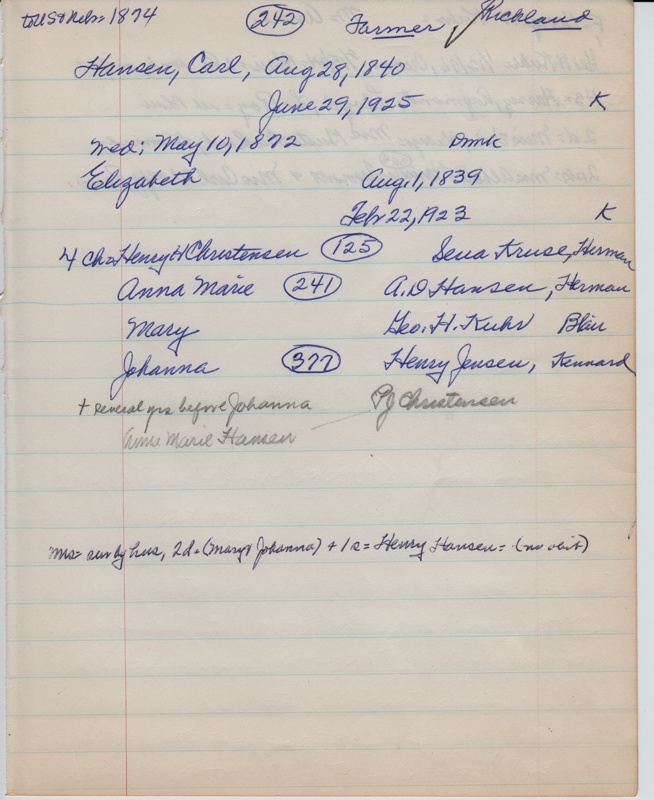 to US & Nebr 1874 (242) Farmer, Richland
Hansen, Carl, Aug 28, 1840
June 29, 1925 K
Wed: May 10, 1872 Dmk
Elizabeth Aug. 1, 1839
Feb 22, 1923 K
4 ch = Henry H Christensen (125) Sena Kruse, Herman
Anna Marie (241) A.D Hansen, Herman
Mary Geo. H. Kuhr Blair
Johanna (377) Henry Jensen, Kennard
+ several yrs before Johanna PJ Christensen
Anna Marie Hansen
Mrs = sur by hus, 2d = (Mary & Johanna) + 1 s = Henry Hansen = (no obit)